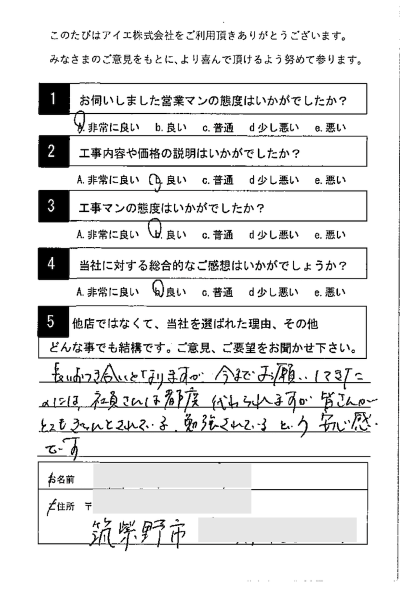 このたびはアイエ株式会社をご利用頂きありがとうございます。
みなさまのご意見をもとに、より喜んで頂けるよう努めて参ります。
1 お伺いしました営業マンの態度はいかがでしたか?
a.非常に良い b.良い c.普通 d少し悪い e.悪い
2 工事内容や価格の説明はいかがでしたか?
A.非常に良い b.良い c.普通 d少し悪い e.悪い
3 工事マンの態度はいかがでしたか?
A.非常に良い b.良い c.普通 d少し悪い e.悪い
4 当社に対する総合的なご感想はいかがでしょうか?
A.非常に良い b.良い c.普通 d少し悪い e.悪い
5 他店ではなくて、当社を選ばれた理由、その他
どんな事でも結構です。ご意見、ご要望をお聞かせ下さい。
長いおつき合いとなりますが 今までお願いしてきた
のには、社員さんは都度 代わられますが 皆さんが
とてもきちんとされている、勉強されているという 安心感
です
お名前
ご住所 〒
筑紫野市